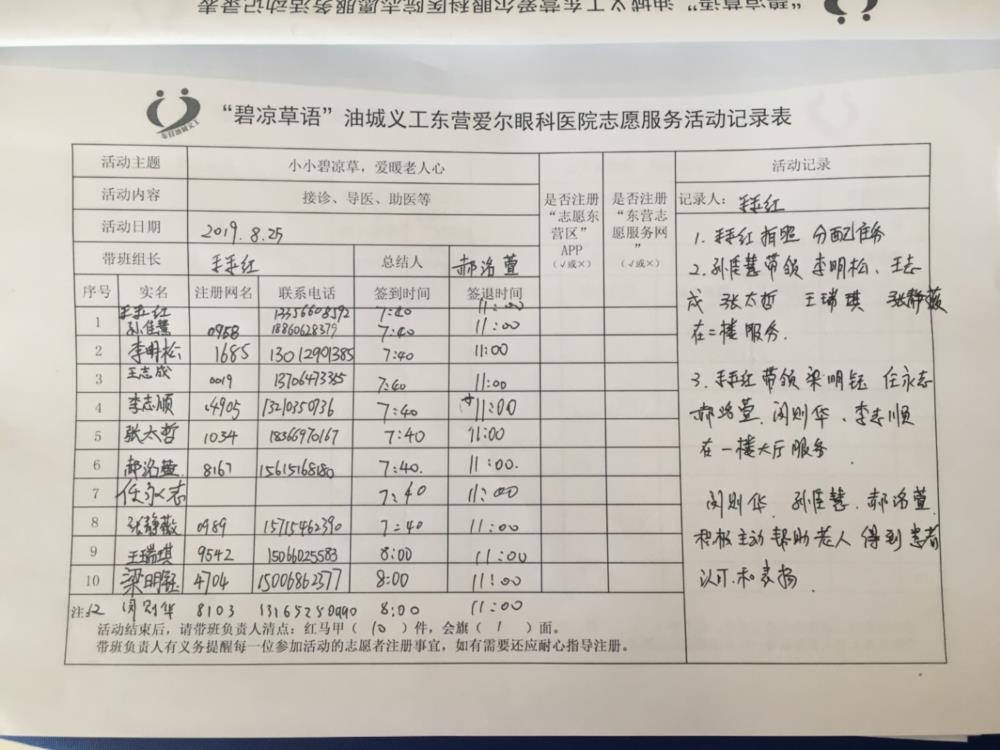 “碧凉草语”油城义工东营爱尔眼科医院志愿服务活动记录表
东营油城义工
“碧凉草语”油城义工东营爱尔眼科医院志愿服务活动记录表
活动主题 小小碧凉草，爱暖老人心 是否注册“志愿东营区”APP（√或×） 是否注册“东营志愿服务网”（√或×） 活动记录
活动内容 接诊、导医、助医等
活动日期 2019.8.25
带班组长 红 总结人 郝洺萱
序号 实名 注册网名 联系电话 签到时间 签退时间
红 13356608592 7:40 11:00
1 0958 18860628379 7:40 11:00
2 李明松 1685 13012901385 7:40 11:00
3 王志成 0019 13706473385 7:40 11:00
4 李志顺 4905 13210350736 7:40 11:00
5 张太哲 1034 18366970167 7:40 11:00
6 郝洺萱 8167 15615168180 7:40. 11:00.
7 任永志 7:40 11:00
8 张静薇 0989 15715462390 7:40 11:00
9 王瑞琪 9542 15066025583 8:00 11:00
10 梁明钰 4704 15006862377 8:00 11:00
注: 12 闵则华 8103 13165250990 8:00 11:00
活动结束后，请带班负责人清点：红马甲（ 10 ）件，会旗（ 1 ）面。
带班负责人有义务提醒每一位参加活动的志愿者注册事宜，如有需要还应耐心指导注册。
记录人： 红
1. 红拍照 分配任务
2. 孙佳慧带领 李明松、王志
成 张太哲 王瑞琪 张静薇
在二楼服务.
3. 红带领 梁明钰 任永志
郝洺萱 闵则华、李志顺
在一楼大厅服务
闵则华 孙佳慧.郝洺萱
积极主动帮助老人 得到患者
认可.和表扬